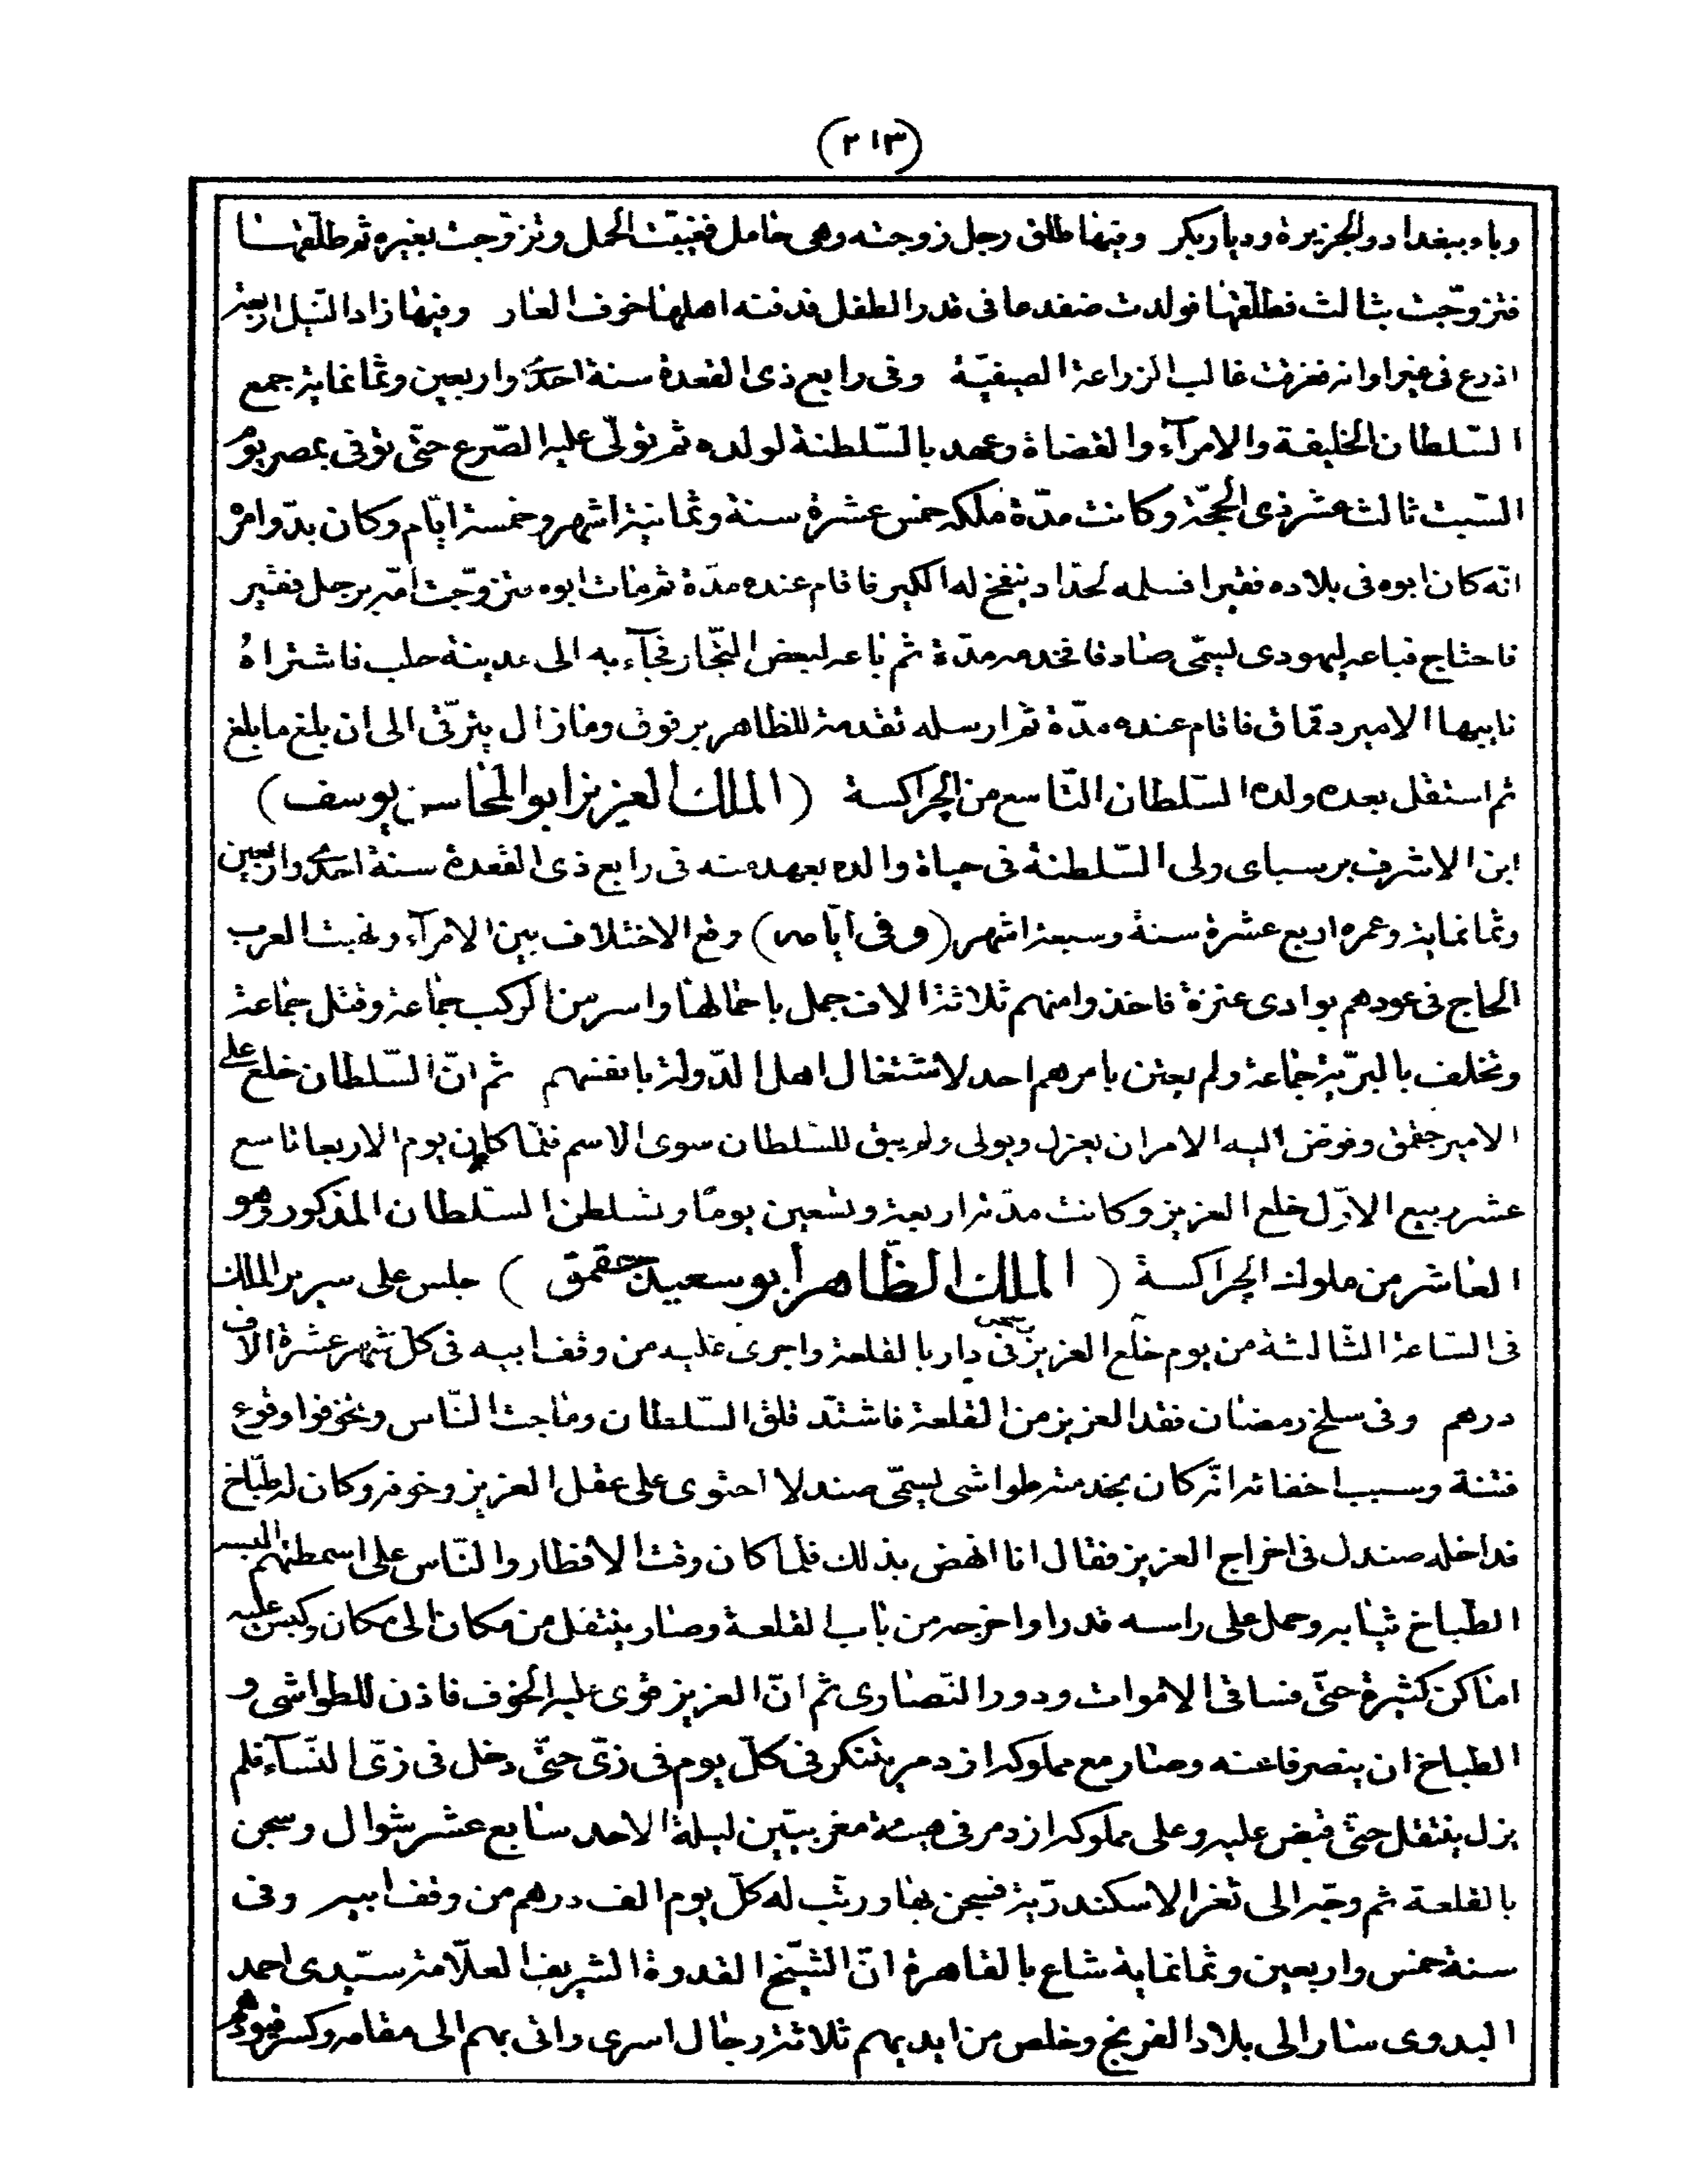 (٢١٣)
وباء ببغداد والجزيرة وديار بكر وفيها طلق رجل زوجته وهى حامل فغيبت الحمل وتزوجت بغيره ثم طلقها
فتزوّجت بثالث فطلّقها فولدت ضفدعا فى قدر الطفل فدفنه اهلها خوف العار وفيها زاد النّيل اربعة
اذرع فى غير اوانه فغرقت غالب الزراعة الصيفيّة وفى رابع ذى القعدة سنة احدى واربعين وثمانماية جمع
السّلطان الخليفة والامرآء والقضاة وعهد بالسّلطنة لولده ثم تولّى عليه الصّرع حتّى توفى بمصر يوم
السّبت ثالث عشر ذى الحجّة وكانت مدّة ملكه خمس عشرة سنة وثمانية اشهر وخمسة ايّام وكان بدوّ امره
انّه كان ابوه فى بلاده فقيرا فسلمه لحدّاد ينفخ له الكير فاقام عنده مدّة ثم مات ابوه فتزوّجت امّه برجل فقير
فاحتاج فباعه ليهودى يسمّى صادقا فخدمه مدّة ثم باعه لبعض التجّار فجآء به الى مدينة حلب فاشتراهُ
نايبها الامير دقماق فاقام عنده مدّة ثم ارسله تقدمة للظاهر برقوق ومازال يترقّى الى ان بلغ ما بلغ
ثم استقل بعده ولده السّلطان التّاسع من الجراكسة (الملك العزيز ابو المحاسن يوسف)
ابن الاشرف برسباى ولى السّلطنة فى حياة والده بعهد منه فى رابع ذى القعدة سنة احدى واربعين
وثمانماية وعمره اربع عشرة سنة وسبعة اشهر (وفى ايّامه) وقع الاختلاف بين الامرآء ونهبت العرب
الحاج فى عودهم بوادى عنترة فاخذوا منهم ثلاثة الاف جمل باحمالها واسر من الركب جماعة وقتل جماعة
وتخلف بالبرّية جماعة ولم يعتن بامرهم احد لاشتغال اهل الدّولة بانفسهم ثم انّ السّلطان خلع على
الامير جقمق وفوض اليه الامر ان يعزل ويولى ولم يبق للسّلطان سوى الاسم فلمّا كان يوم الاربعا تاسع
عشر ربيع الاوّل خلع العزيز وكانت مدّته اربعة وتسعين يومًا وتسلطن السّلطان المذكور وهو
العاشر من ملوك الجراكسة (الملك الظّاهر ابو سعيد جقمق) جلس على سرير الملك
فى السّاعة الثّالثة من يوم خلع العزيز فى دار بالقلعة واجرى عليه من وقف ابيه فى كل شهر عشرة الاف
درهم وفى سلخ رمضان فقد العزيز من القلعة فاشتدّ قلق السّلطان وماجت النّاس وتخوفوا وقوع
فتنة وسبب اختفائه انّه كان بخدمته طواشى يسمّى صندلا احتوى على عقل العزيز وخوفه وكان له طبّاخ
فداخله صندل فى اخراج العزيز فقال انا انهض بذلك فلما كان وقت الافطار والنّاس على اسمطتهم البسه
الطّباخ ثيابه وحمل على راسه قدرا واخرجه من باب القلعة وصار ينتقل من مكان الى مكان وكبس عليه
اماكن كثيرة حتّى فساقى الاموات ودور النّصارى ثم انّ العزيز قوى عليه الخوف فاذن للطواشى و
الطباخ ان ينصرفا عنه وصار مع مملوكه ازدمر يتنكر فى كلّ يوم فى زىّ حتّى دخل فى زىّ النّسآء فلم
يزل ينتقل حتّى قبض عليه وعلى مملوكه ازدمر فى هيئة مغربيّين ليلة الاحد سابع عشر شوال وسجن
بالقلعة ثم وجّه الى ثغر الاسكندريّة فسجن بها ورتب له كلّ يوم الف درهم من وقف ابيه وفى
سنة خمس واربعين وثمانماية شاع بالقاهرة انّ الشّيخ القدوة الشريف العلّامة سيّدى احمد
البدوى سار الى بلاد الفرنج وخلص من ايديهم ثلاثة رجال اسرى واتى بهم الى مقامه وكسر قيودهم